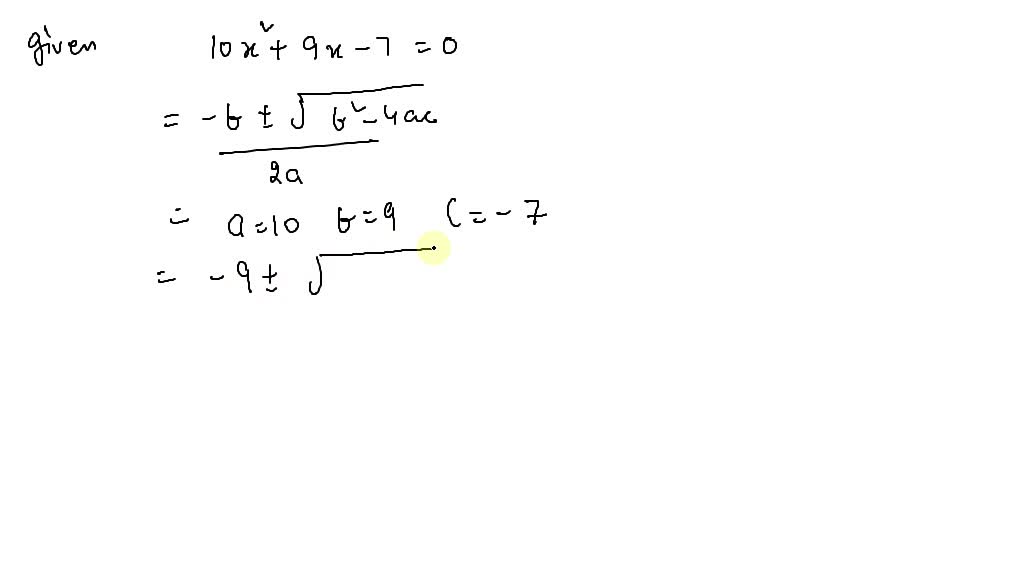 given 10x² + 9x - 7 = 0
= -b ± √b² - 4ac
2a
= a = 10 b = 9 c = -7
= -9 ± √